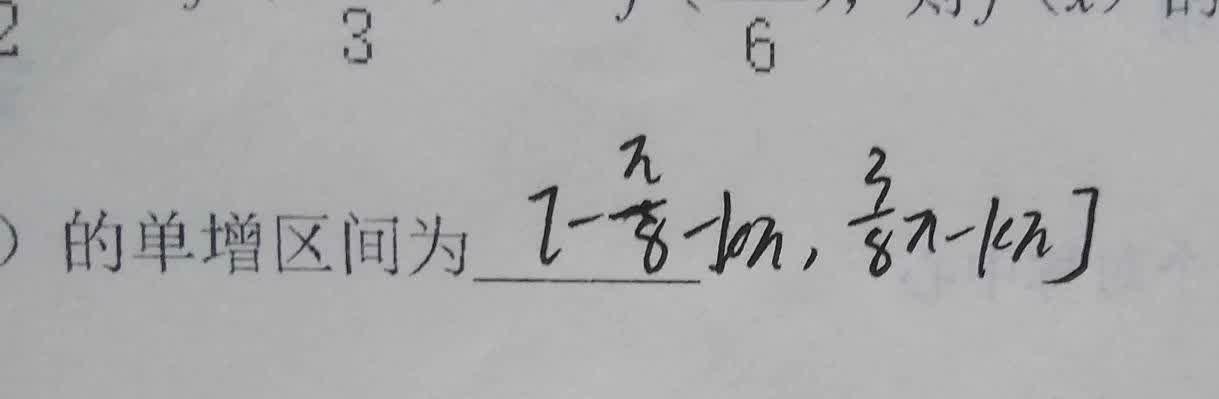 2 3 6 ), 则 f (x) 的
) 的单增区间为 [-π/8-kπ, 3/8π-kπ]